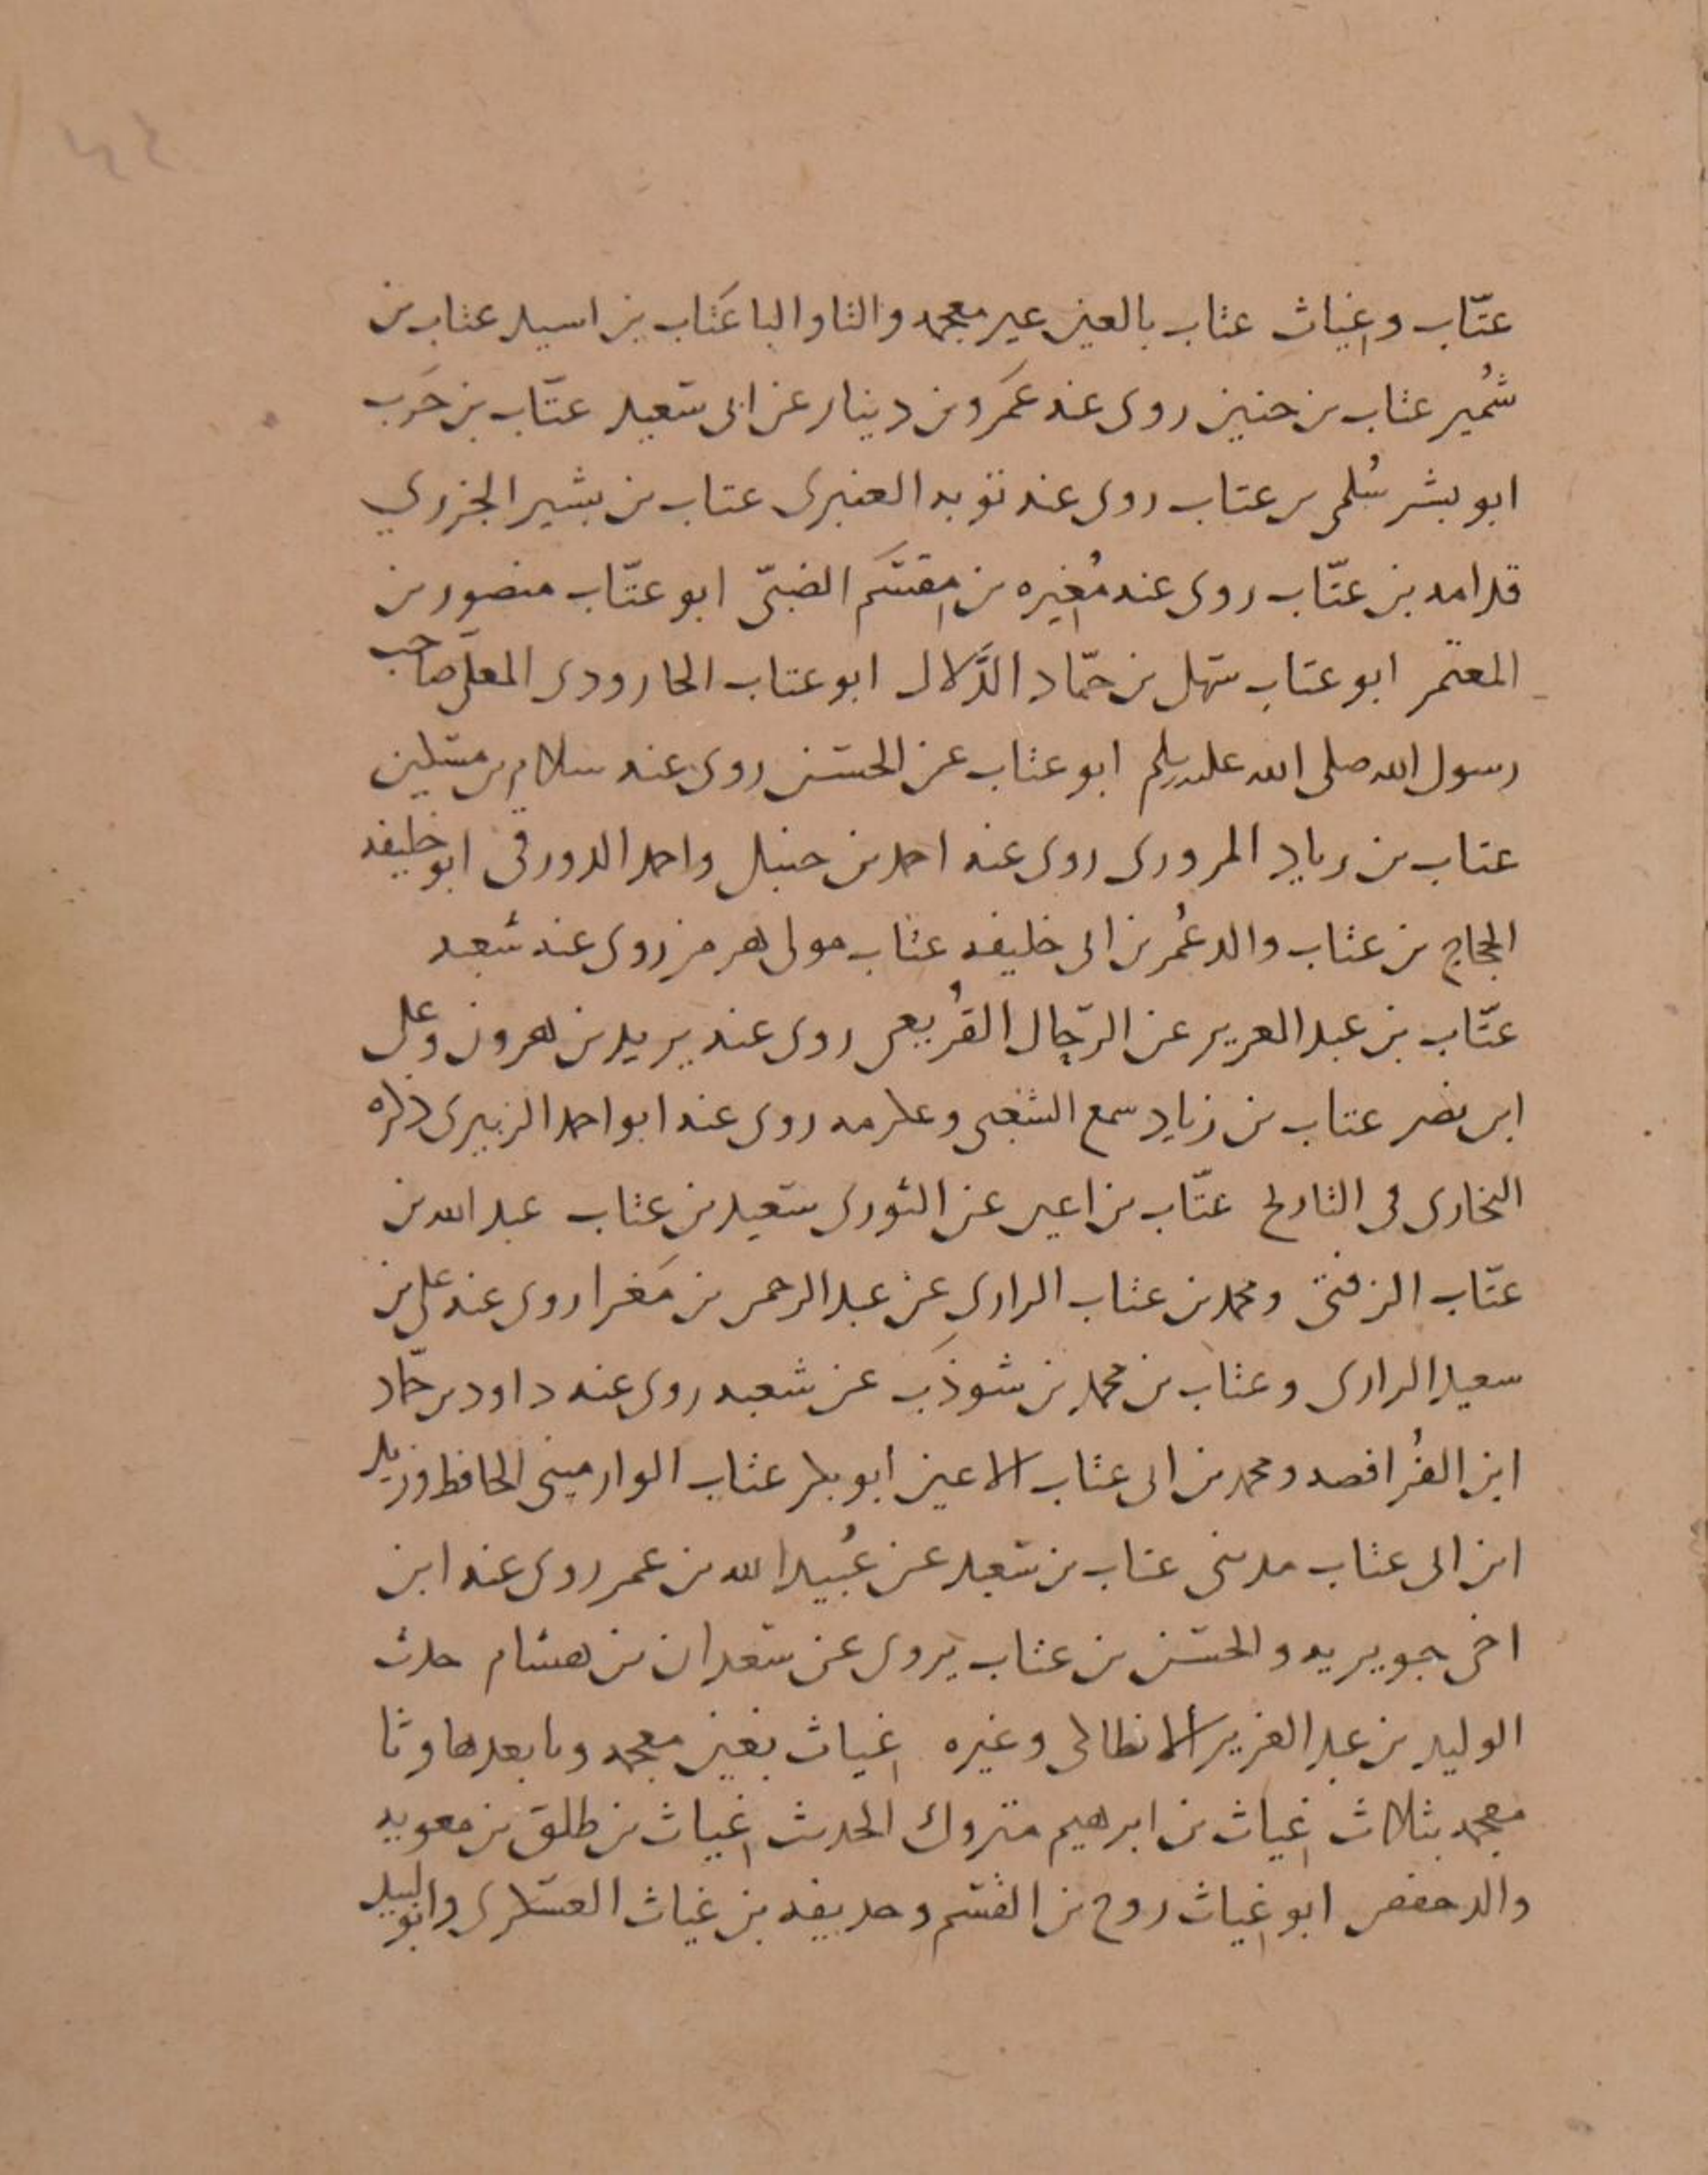 عتّاب وغِياث عتاب بالعين غير معجمه والتا والبا عَتاب بن اسيد عتاب بن
شُمير عتاب بن حنين روى عنه عَمرو بن دينار عن ابى سعيد عتّاب بن حَرب
ابو بشر سُلمى بن عتاب روى عنه توبه العنبرى عتاب بن بشير الجزري
قدامه بن عتّاب روى عنه مُغِيره بن مِقسَم الضبىّ ابو عتّاب منصور بن
المعتمر ابو عتاب سهل بن حمّاد الدَّلال ابو عتاب الجارودى المعلى صاحب
رسول الله صلى الله عليه وسلم ابو عتاب عن الحسن روى عنه سلام بن مسكين
عتاب بن زياد المروزى روى عنه احمد بن حنبل واحمد الدورقى ابو خليفه
الحجاج بن عتاب والد عُمر بن ابى خليفه عتاب مولى هرمز روى عنه شعبه
عتّاب بن عبد العزيز عن الرحّال القُريعى روى عنه يزيد بن هرون وعلى
ابن نصر عتاب بن زياد سمع الشعبى وعكرمه روى عنه ابو احمد الزبيرى ذكره
البخارى فى التاريخ عتّاب بن اعين عن الثورى سعيد بن عتاب عبد الله بن
عتّاب الزفتى ومحمد بن عتاب الرازى عن عبد الرحمن بن مَغرا روى عنه على بن
سعيد الرازى وعتاب بن محمد بن شوذَب عن شعبه روى عنه داود بن حمّاد
ابن الفُرافصه ومحمد بن ابى عتاب الاعين ابو بكر عتاب الوارمينى الحافظ وزيد
ابن ابى عتاب مدينى عتاب بن سعيد عن عُبيد الله بن عمر روى عنه ابن
اخى جويريه والحسن بن عتاب يروى عن سعدان بن هشام حدث
الوليد بن عبد العزيز الانطاكى وغيره غِياث بغين معجمه وما بعدها وثا
معجمه بثلاث غِياث بن ابرهيم متروك الحديث غِياث بن طلق بن معويه
والد حفص ابو غِياث روح بن القسم وحذيفه بن غياث العسكرى وابو لبيد